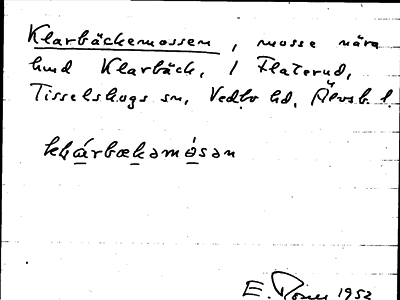 Klarbäckemossen, mosse nära
hmd Klarbäck, 1 Flaterud,
Tisselskogs sn, Vedbo hd, Älvsb. l.
kḷàrbækəmòsən
E. 1952